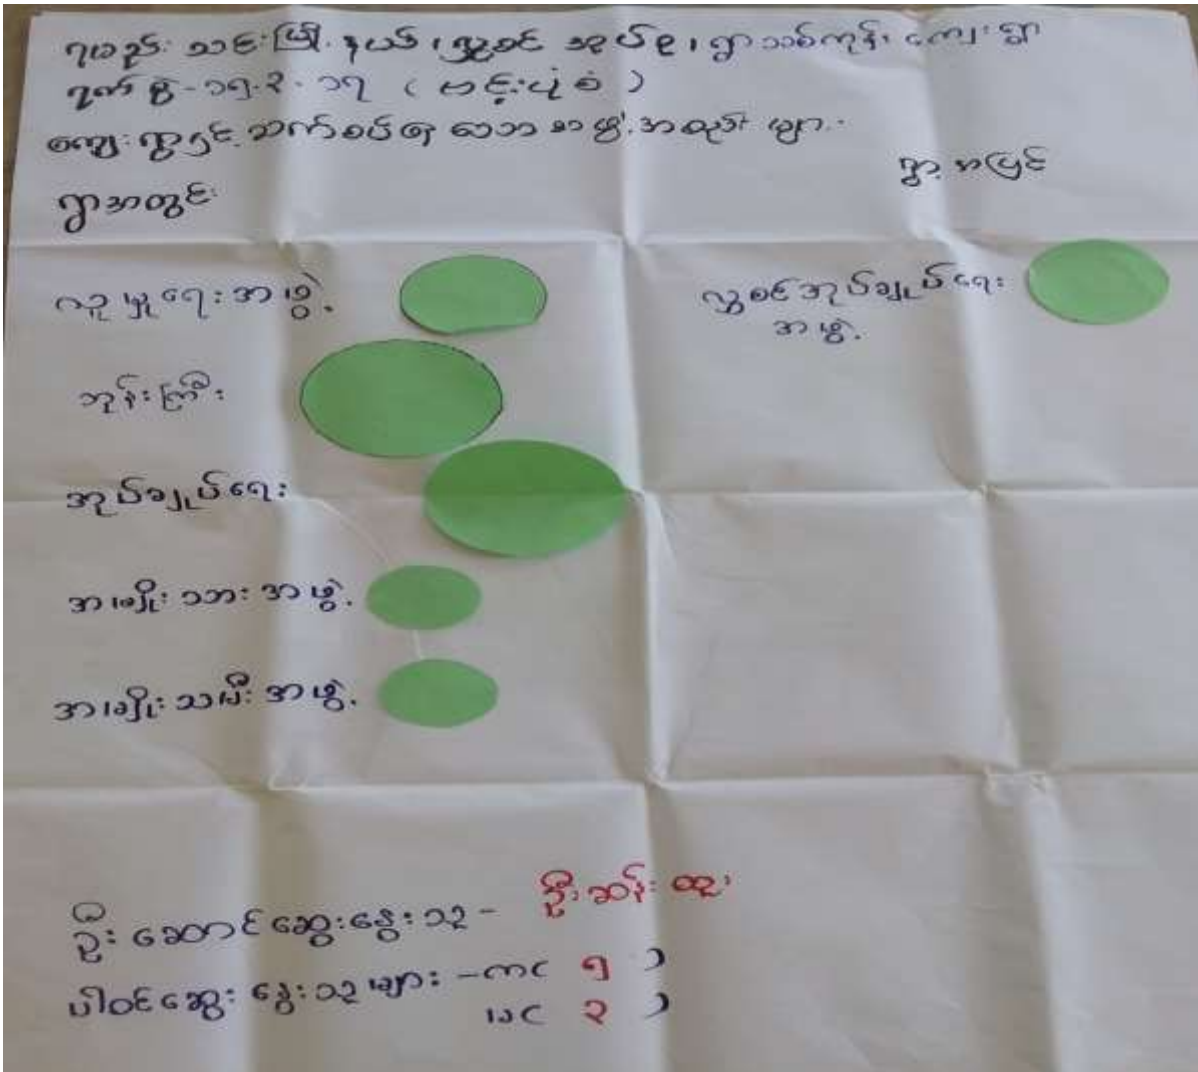 ရမည်း သင်းမြို့နယ်၊ လှူစင် အုပ်စု၊ ရွာသစ်ကုန်း ကျေးရွာ
ရက်စွဲ - ၁၅.၃.၁၇ ( ဗင်းပုံစံ )
ကျေးရွာနှင့် ဆက်စပ်နေသော အဖွဲ့အစည်းများ
ရွာ့အပြင်
ရွာအတွင်း
လူမှုရေးအဖွဲ့
လှူစင်အုပ်ချုပ်ရေး
အဖွဲ့
ဘုန်းကြီး
အုပ်ချုပ်ရေး
အမျိုးသားအဖွဲ့
အမျိုးသမီးအဖွဲ့
ဦးဆောင်ဆွေးနွေးသူ - ဦးဆန်းထူး
ပါဝင်ဆွေးနွေးသူများ - ကျ ( ၅ )
မ ( ၃ )